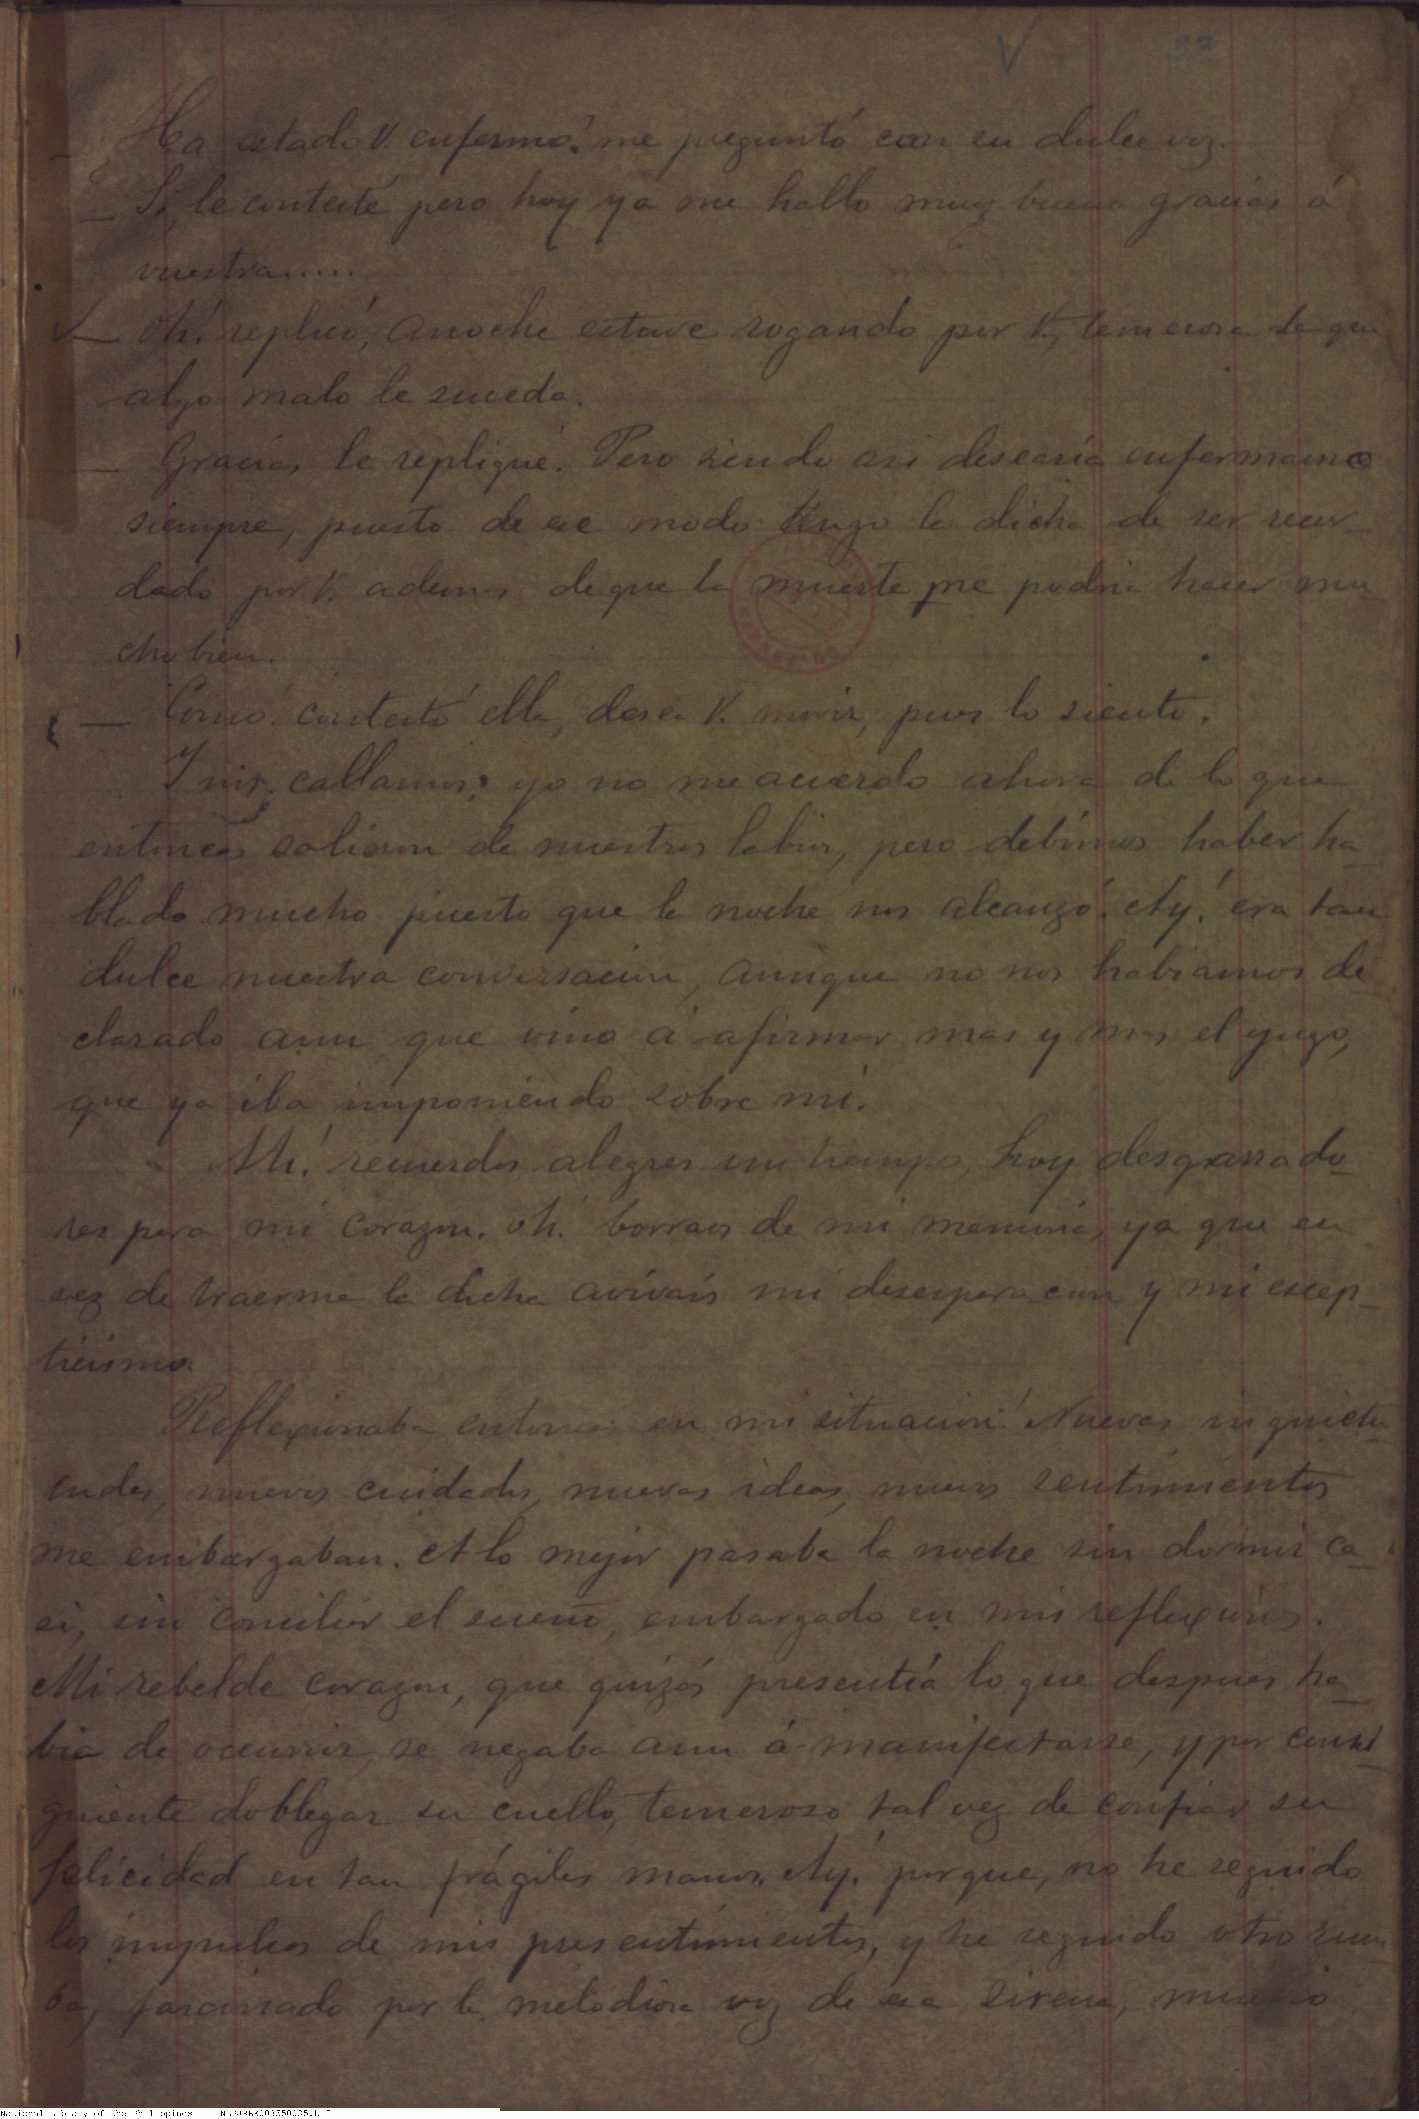 Ha estado V. enfermo? me preguntó con su dulce voz.
— Si, le contesté pero hoy ya me hallo muy bueno gracias á
vuestra.....
— Oh! replicó, anoche estuve rogando por V., temerosa de que
algo malo le suceda.
— Gracias le repliqué. Pero siendo asi desearía enfermarme
siempre, puesto de ese modo tengo la dicha de ser recor-
dado por V. ademas de que la muerte me podria hacer mu-
cho bien.
— Como! contestó ella, desea V. morir, pues lo siento.
Y nos callamos; yo no me acuerdo ahora de lo que
entonces salieron de nuestros labios, pero debimos haber ha-
blado mucho puesto que la noche nos alcanzó. Ay! era tan
dulce nuestra conversacion, aunque no nos habiamos de-
clarado aun que vino á afirmar mas y mas el yugo,
que ya iba imponiendo sobre mi.
Ah! recuerdos alegres un tiempo, hoy desgarrado-
res para mi corazon. oh! borraos de mi memoria, ya que en
vez de traerme la dicha avivais mi desesperacion y mi escep-
ticismo.
Reflexionaba entonces en mi situacion! Nuevas inquietu-
tudes, nuevos cuidados, nuevas ideas, nuevos sentimientos
me embargaban. A lo mejor pasaba la noche sin dormir ca-
si, sin conciliar el sueño, embargado en mis reflexiones.
Mi rebelde corazon, que quizás presentía lo que despues ha-
bia de ocurrir, se negaba aun á manifestarse, y por consi-
guiente doblegar su cuello, temeroso tal vez de confiar su
felicidad en tan frágiles manos. Ay! porque, no he seguido
los impulsos de mis presentimientos, y he seguido otro rum-
bo, fascinado por la melodiosa voz de esa sirena,